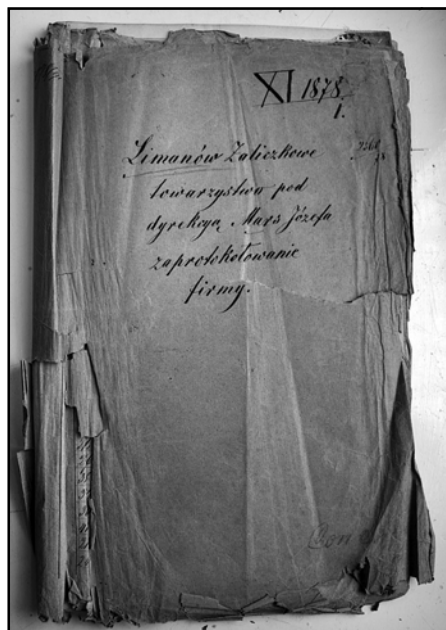 XI 1878.
1.
Limanów Zaliczkowe
towarzystwa pod
dyrekcyą Mars Józefa
zaprotokołowanie
firmy.